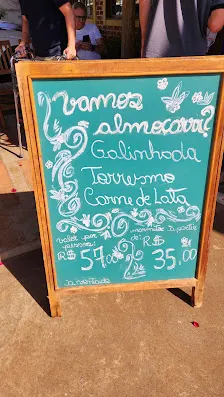 Vamos
almoçar?
Galinhada
Torresmo
Carne de Lata
valor por
pessoa:
R$ 57,00
marmitex a partir
de: R$
35,00